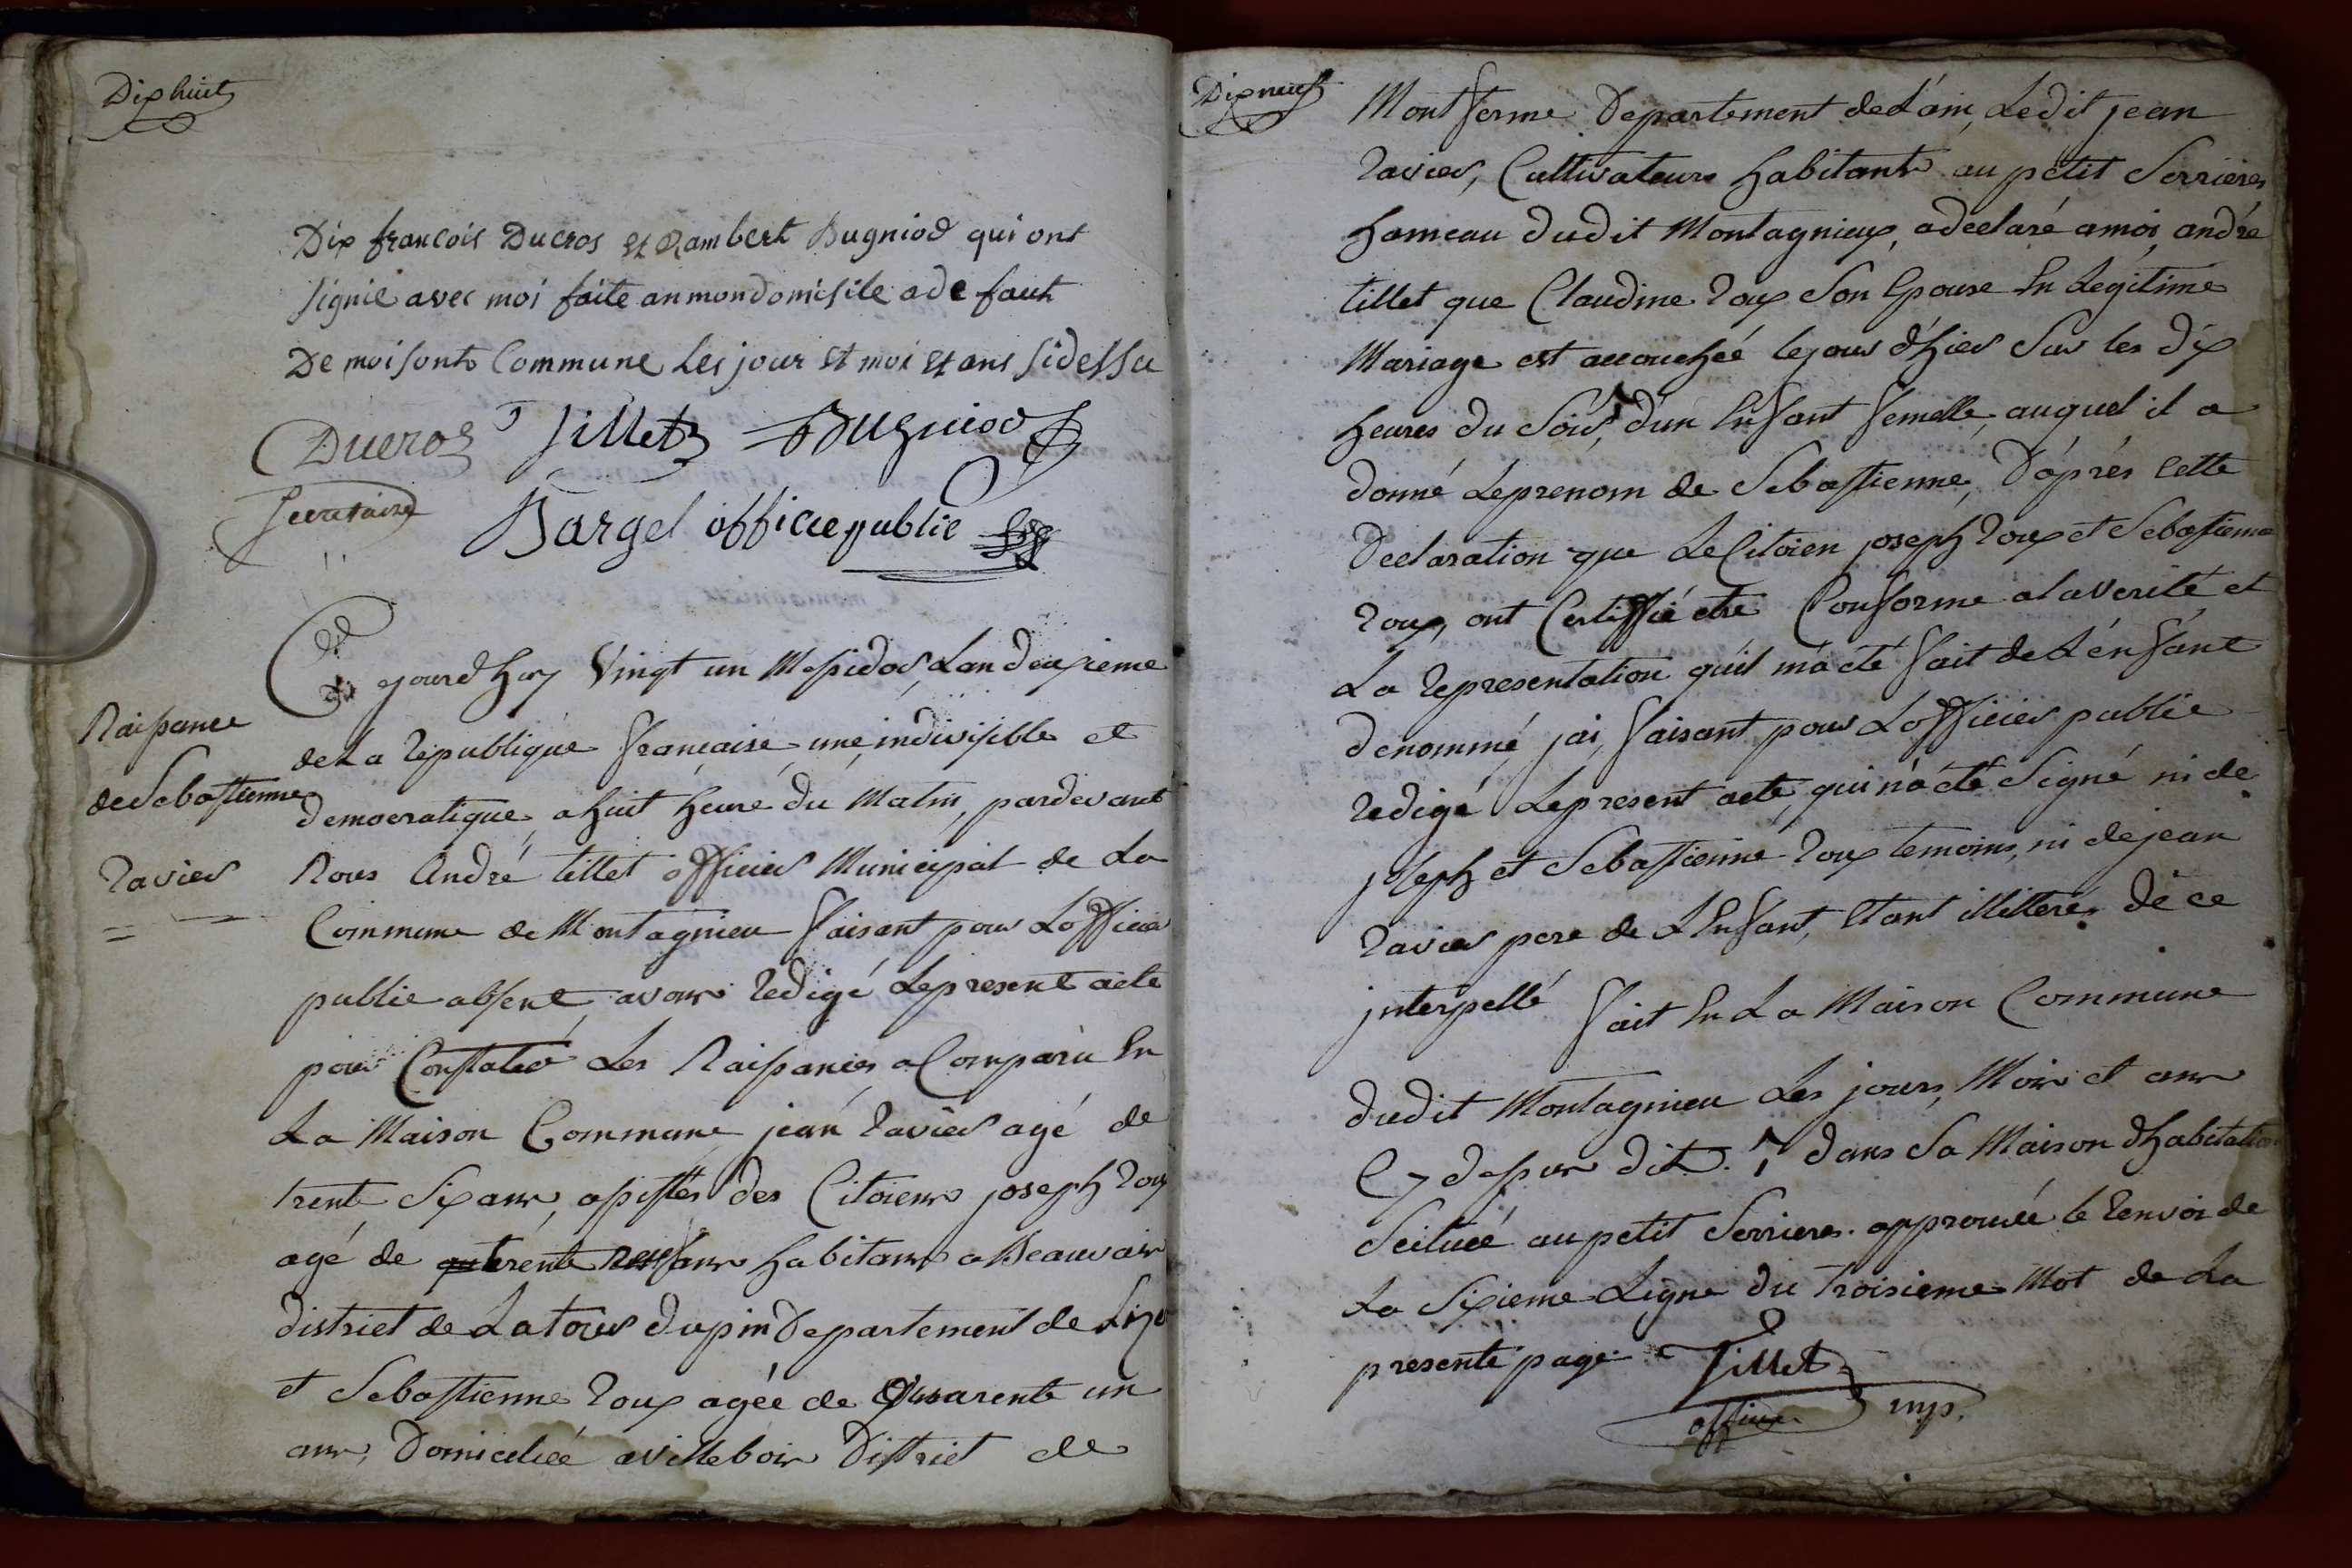 Dix huit
Dix francois Ducros et Rambert Bugniod qui ont
signié avec moi faite an mon domisile a de faut
De moisonts Commune les jour et moi et ans sidessu
Ducros J Tillet Bugniod
Secretaire
Bargel officie publie
Ce jourdhuy Vingt un Messidor, L an deuxieme
Naissance
de La République francaise une, indivisible et
de Sebastienne
democratique, a huit heure du Matin, pardevant
Ravier
Nous André tillet officier Municipal de La
Commune de Montagnieu faisant pour Lofficier
public absent, avons Redigé Le present acte
pour Constater Les Naissances a Comparu En
La Maison Commune jean Ravier agé de
trente Six ans, assistés des Citoiens joseph Roux
agé de trente neuf ans habitans a Beauvoir
district de La tour du pin Departement de Lizer
et Sebastienne Roux agée de Quarente un
ans, Domiciliée a Villebois District de
Dix neuf
Montferme Departement de L'ain, Ledit jean
Ravier, Cultivateur habitant au petit Serrieres
hameau dudit Montagnieux, a declaré a moi, andré
tillet que Claudine Roux Son Epouse En Legitime
Mariage est accouchéé le jour d'hier Sur les dix
heures du Soir, d'un Enfant femelle, auquel il a
donné Le prenom de Sebastienne, D'aprés Cette
Declaration que Le Citoien joseph Roux et Sebastienne
Roux, ont Certiffié etre Conforme a la Verité et
La Representation qu'il m'a été fait de L'enfant
denommé, jai, faisant pour Lofficier public
Redigé Le present acte, qui n'a été Signé ni de
joseph et Sebastienne Roux temoins, ni de jean
Ravier pere de L Enfant, Etant illiteré, de ce
interpellé fait En La Maison Commune
dudit Montagnieu Les jours, Mois et ans
Cy dessus dit. dans Sa Maison d'habitation
Scituéé au petit Serrieres. approuvée le Renvoi de
La Sixieme Ligne du troisieme Mot de La
presente page. Tillet
officier mp.